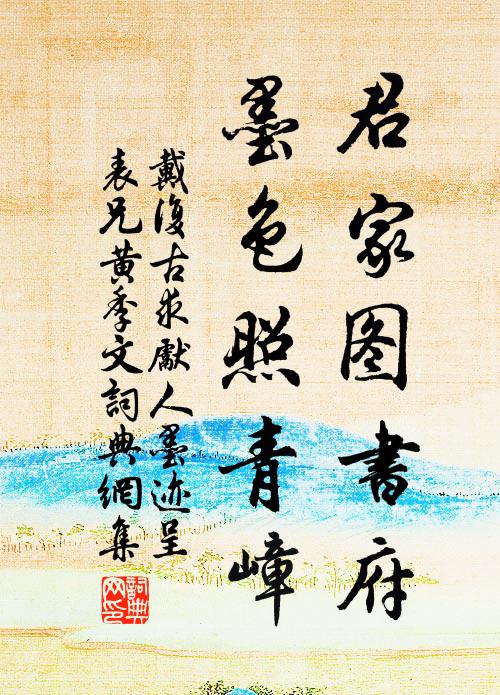 君家图書府
墨色照青嶂
戴復古求獻人墨迹呈
表兄黄季文詞典網集
詞典網印